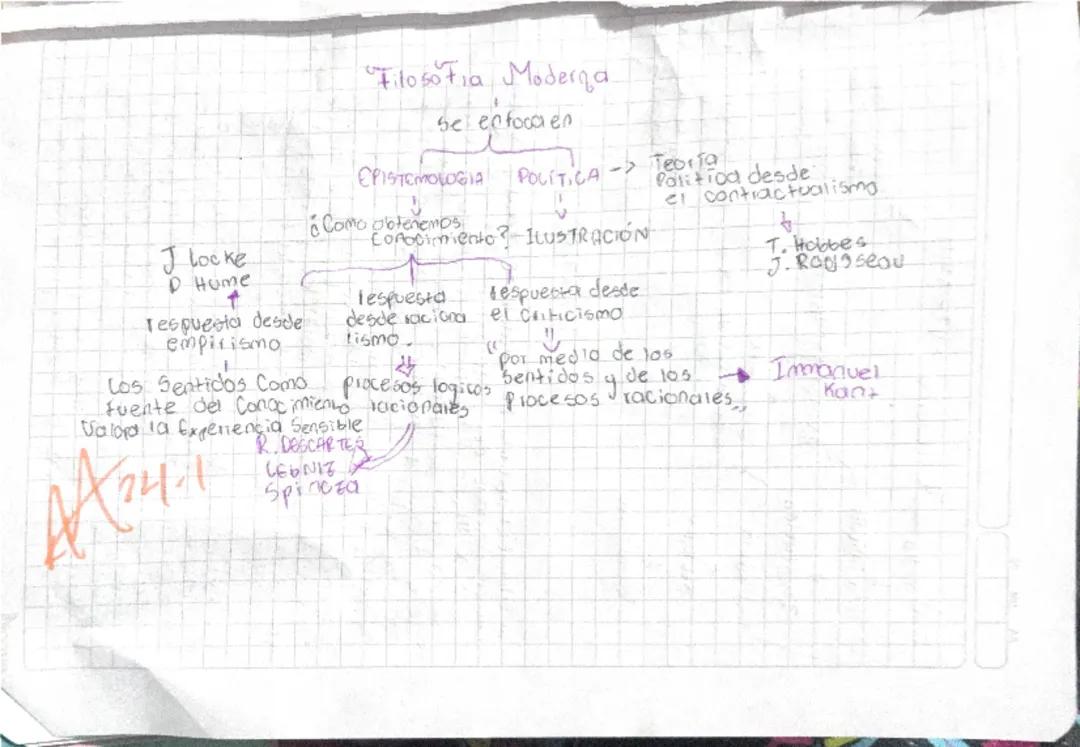 Filosofía Moderna
se enfoca en
EPISTEMOLOGIA
POLÍTICA ->
Teoría
Política desde
el contractualismo
T. Hobbes
J. Rousseau
¿Como obtenemos
conocimiento?
ILUSTRACIÓN
J Locke
D Hume
respuesta desde
empirismo
Los Sentidos Como
fuente del Conocimiento
Valora la Experiencia Sensible
respuesta
desde raciona
lismo.
procesos logicos
racionales
R. DESCARTES
LEBNIZ
Spinoza
respuesta desde
el Criticismo
"por medio de los
Sentidos y de los
Procesos racionales"
Immanuel
Kant